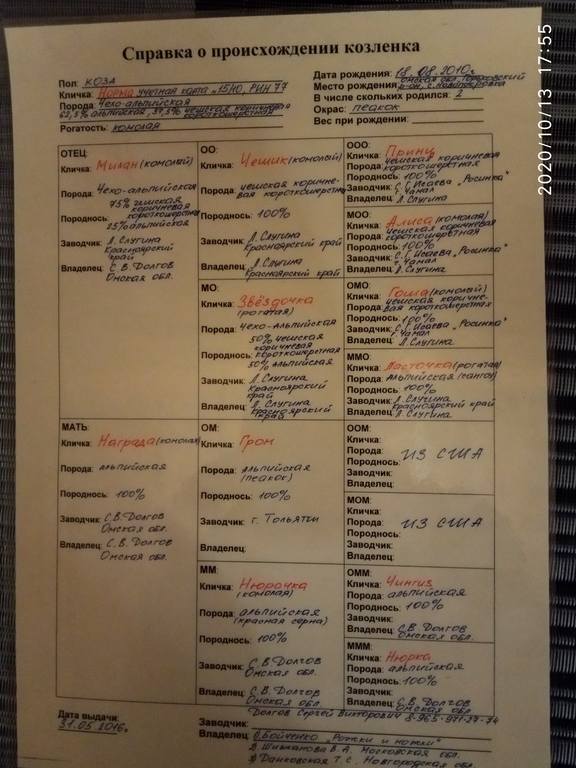 Справка о происхождении козленка
Пол: коза
Кличка: Норма учетная карта "15/10, РИН 77
Порода: Чехо-альпийская
62,5% альпийская, 37,5% чешская коричневая короткошерстная
Рогатость: комолая
Дата рождения: 18.08.2010г.
Место рождения: Омская обл,
р-он, с.
В числе скольких родился: 2
Окрас: пеакок
Вес при рождении:
ОТЕЦ:
Кличка: Милан (комолый)
Порода: Чехо-альпийская
75% чешская
коричневая
Породность: короткошерстная
25% альпийская
Заводчик: Л. Слугина
Красноярский
край
Владелец: С. В. Долгов
Омская обл.
ОО:
Кличка: Чешик (комолый)
Порода: чешская коричне-
вая короткошерстная
Породнось: 100%
Заводчик: Л. Слугина
Красноярский край
Владелец: Л. Слугина
Красноярский край
МО:
Кличка: Звёздочка
(рогатая)
Порода: Чехо-Альпийская
50% чешская
коричневая
Породнось: короткошерстная
50% альпийская
Заводчик: Л. Слугина
Красноярский
край
Владелец: Л. Слугина
Красноярский
край
ООО:
Кличка: Принц
Порода: чешская коричневая
короткошерстная
Породнось: 100%
Заводчик: С. Г. Исаева "Росинка"
г. Чамал
Владелец: Л. Слугина
МОО:
Кличка: Алиса (комолая)
Порода: чешская коричневая
короткошерстная
Породнось: 100%
Заводчик: С. Г. Исаева "Росинка"
г. Чамал
Владелец: Л. Слугина
ОМО:
Кличка: Гоша (комолый)
Порода: чешская коричне-
вая короткошерстная
Породнось: 100%
Заводчик: С. Г. Исаева "Росинка"
г. Чамал
Владелец: Л. Слугина
ММО:
Кличка: Ласточка (рогатая)
Порода: Альпийская
Породнось: 100%
Заводчик: Л. Слугина
Красноярский край
Владелец: Л. Слугина
МАТЬ:
Кличка: Награда (комолая)
Порода: альпийская
Породнось: 100%
Заводчик: С. В. Долгов
Омская обл.
Владелец: С. В. Долгов
Омская обл.
ОМ:
Кличка: Гром
Порода: альпийская
(пеакок)
Породнось: 100%
Заводчик: г. Тольятти
Владелец:
ММ:
Кличка: Нюрочка
(комолая)
Порода: альпийская
(красная серна)
Породнось: 100%
Заводчик: С. В. Долгов
Омская обл.
Владелец: С. В. Долгов
Омская обл.
ООМ:
Кличка:
Порода: ИЗ США
Породнось:
Заводчик:
Владелец:
МОМ:
Кличка:
Порода: ИЗ США
Породнось:
Заводчик:
Владелец:
ОММ:
Кличка: Чингиз
Порода: альпийская
Породнось: 100%
Заводчик:
Владелец: С. В. Долгов
Омская обл.
МММ:
Кличка: Нюрка
Порода: альпийская
Породнось: 100%
Заводчик:
Владелец: С. В. Долгов
Омская обл.
Дата выдачи:
31.05.2016г.
Долгов Сергей Викторович 8-965-971-27-94
Заводчик:
Владелец: О. Бойченко "Рожки и ножки"
2) Шишканова В. А. Московская обл.
3) Данковская Т. С. Новгородская обл
2020/10/13 17:55